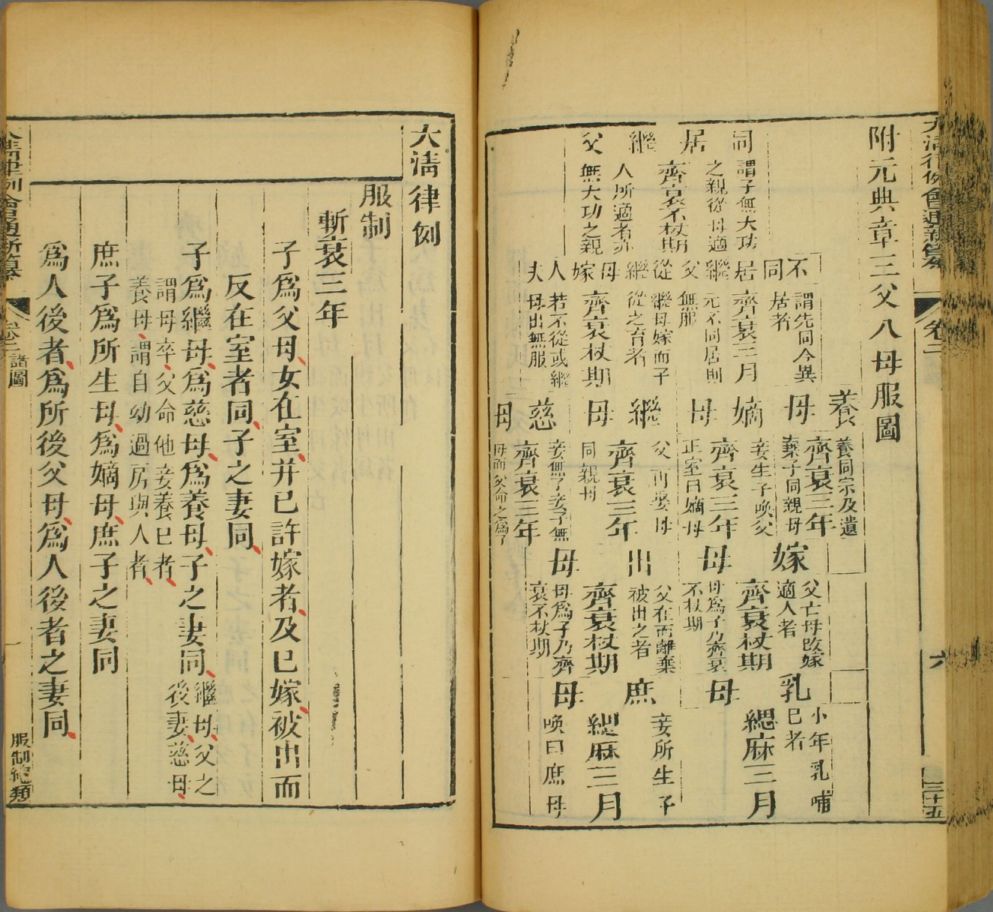 大清律例會通新纂
卷二
六
三十五
附元典章三父八母服圖
同居繼父
謂子無大功
之親從母適
齊衰不杖期
人所適者亦
無大功之親
不同居繼父
謂先同今異
居者
齊衰三月
元不同居則
無服
從繼母嫁人夫
繼母嫁而子
從之育者
齊衰杖期
若不從或繼
母出無服
養母
養同宗及遺
齊衰三年
棄子同親母
嫡母
妾生子喚父
齊衰三年
正室曰嫡母
繼母
父再娶母
齊衰三年
同親母
慈母
妾無子妾子無
齊衰三年
母而父命之爲子
嫁母
父亡母改嫁
適人者
齊衰杖期
母爲子乃齊衰
不杖期
出母
父在而離棄
被出之者
齊衰杖期
母爲子乃齊
衰不杖期
乳母
小年乳哺
已者
緦麻三月
庶母
妾所生子
緦麻三月
喚曰庶母
大清律例
服制
斬衰三年
子爲父母女在室并已許嫁者及已嫁被出而
反在室者同子之妻同
子爲繼母爲慈母爲養母子之妻同繼母父之
後妻慈母
謂母卒父命他妾養已者
養母謂自幼過房與人者
庶子爲所生母爲嫡母庶子之妻同
爲人後者爲所後父母爲人後者之妻同
大清律例會通新纂
卷二
諸圖
一
服制總類